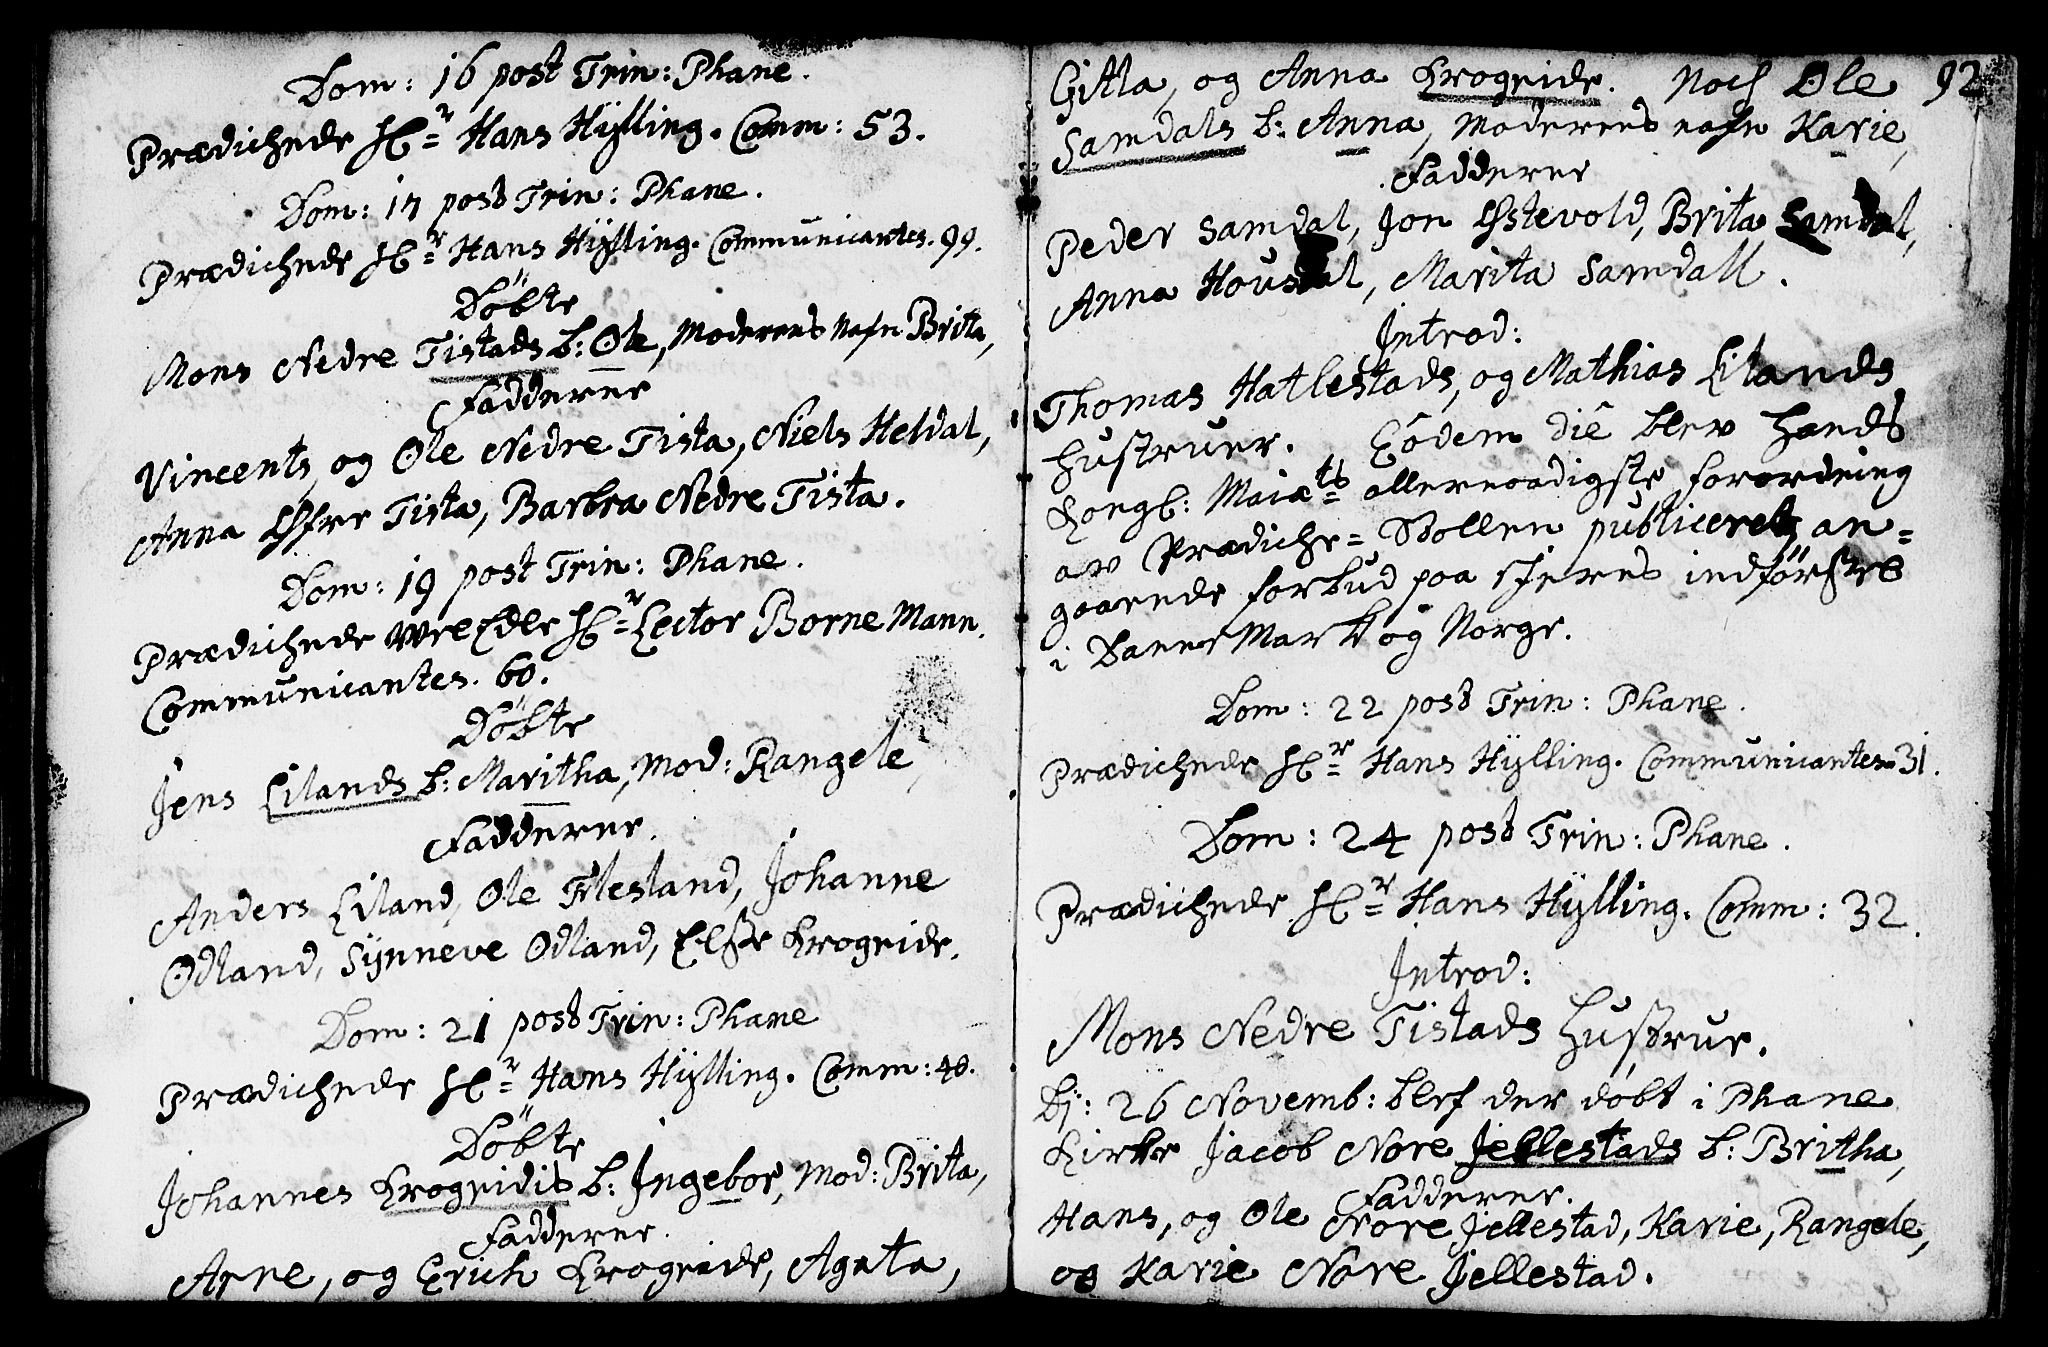 Dom: 16 post Trin: Phane.
Prædichede Hr= Hans Hÿlling. Comm: 53.
Dom: 17 post Trin: Phane.
Prædichede Hr= Hans Hÿlling. Communicantes. 99.
Döbte
Mons Nedre Tistads b: Ole, Moderens Nafn Brita,
Fadderne
Vincents, og Ole Nedre Tista, Niels Heldal,
Anna Øfre Tista, Barbra Nedre Tista.
Dom: 19 post Trin: Phane.
Prædichede WelEdle Hr= Lector BorneMann.
Communicantes. 60.
Döbte
Jens Lilands b: Maritha, Mod: Rangele,
Fadderne.
Anders Liland, Ole Flesland, Johanne
Odland, Sÿnneve Odland, Elsse Krogeide.
Dom: 21 post Trin: Phane
Prædichede Hr= Hans Hÿlling. Comm: 40.
Döbte
Johannes Krogeidis b: Ingebor, Mod: Brita,
Fadderne.
Arne, og Erich Krogeide, Agata,
Gitla, og Anna Krogeide. Noch Ole 92
Samdals b: Anna, Moderens nafn Karie,
Fadderne
Peder Samdal, Jon Østevold, Brita Samdal,
Anna Housdal, Marita Samdall.
Introd:
Thomas Hatlestads, og Mathias Lilands
Hustruer. Eodem die blev Hands
Kongl: Maiæts= allernaadigste forordning
av Prædiche=Stollen publiceret, an=
gaaende forbud paa isjerns indförsel
i DanneMark og Norge.
Dom: 22 post Trin: Phane.
Prædichede Hr= Hans Hÿlling. Communicantes. 31.
Dom: 24 post Trin: Phane.
Prædichede Hr= Hans Hÿlling. Comm: 32.
Introd:
Mons Nedre Tistads Hustrue.
Dj: 26 Novemb: blef der döbt i Phane
Kirke Jacob Nore Jellestads b: Britha,
Fadderne.
Hans, og Ole Nore Jellestad, Karie, Rangele,
og Karie Nore Jellestad.